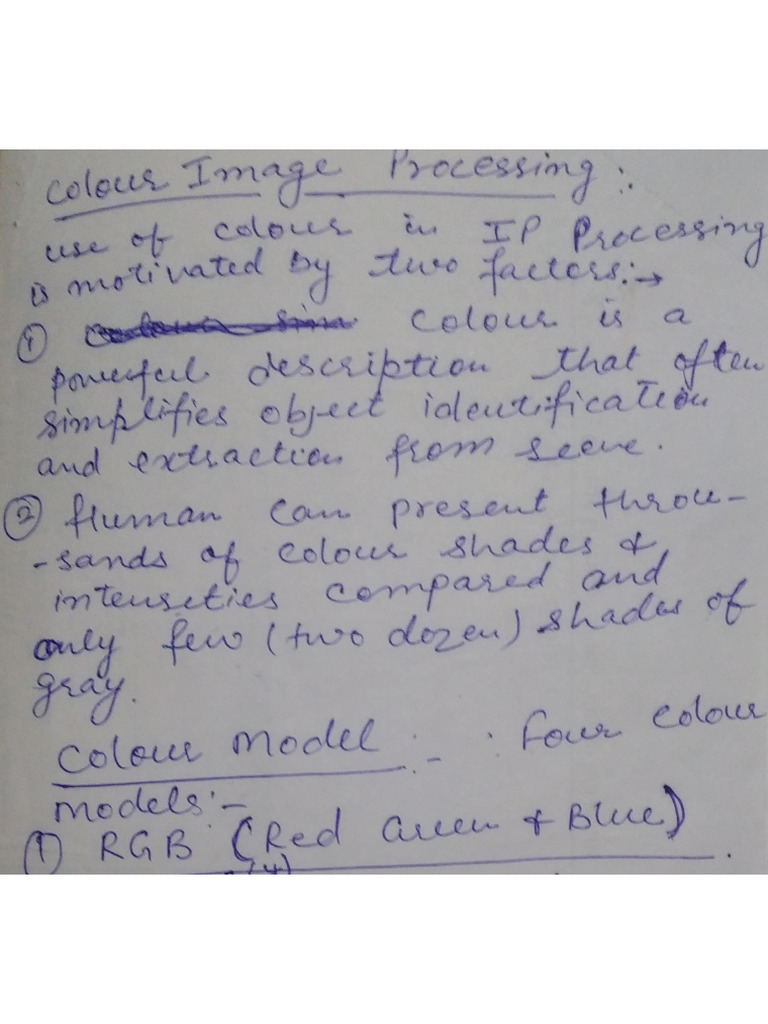 Colour Image Processing :.
use of colour in IP Processing
is motivated by two factors:→
① Colour is a
powerful description that often
simplifies object identification
and extraction from scene.
② Human can present throu-
-sands of colour shades &
intenseties compared and
only few (two dozen) shades of
gray.
Colour Model :- : Four colour
models:-
① RGB (Red Green & Blue)